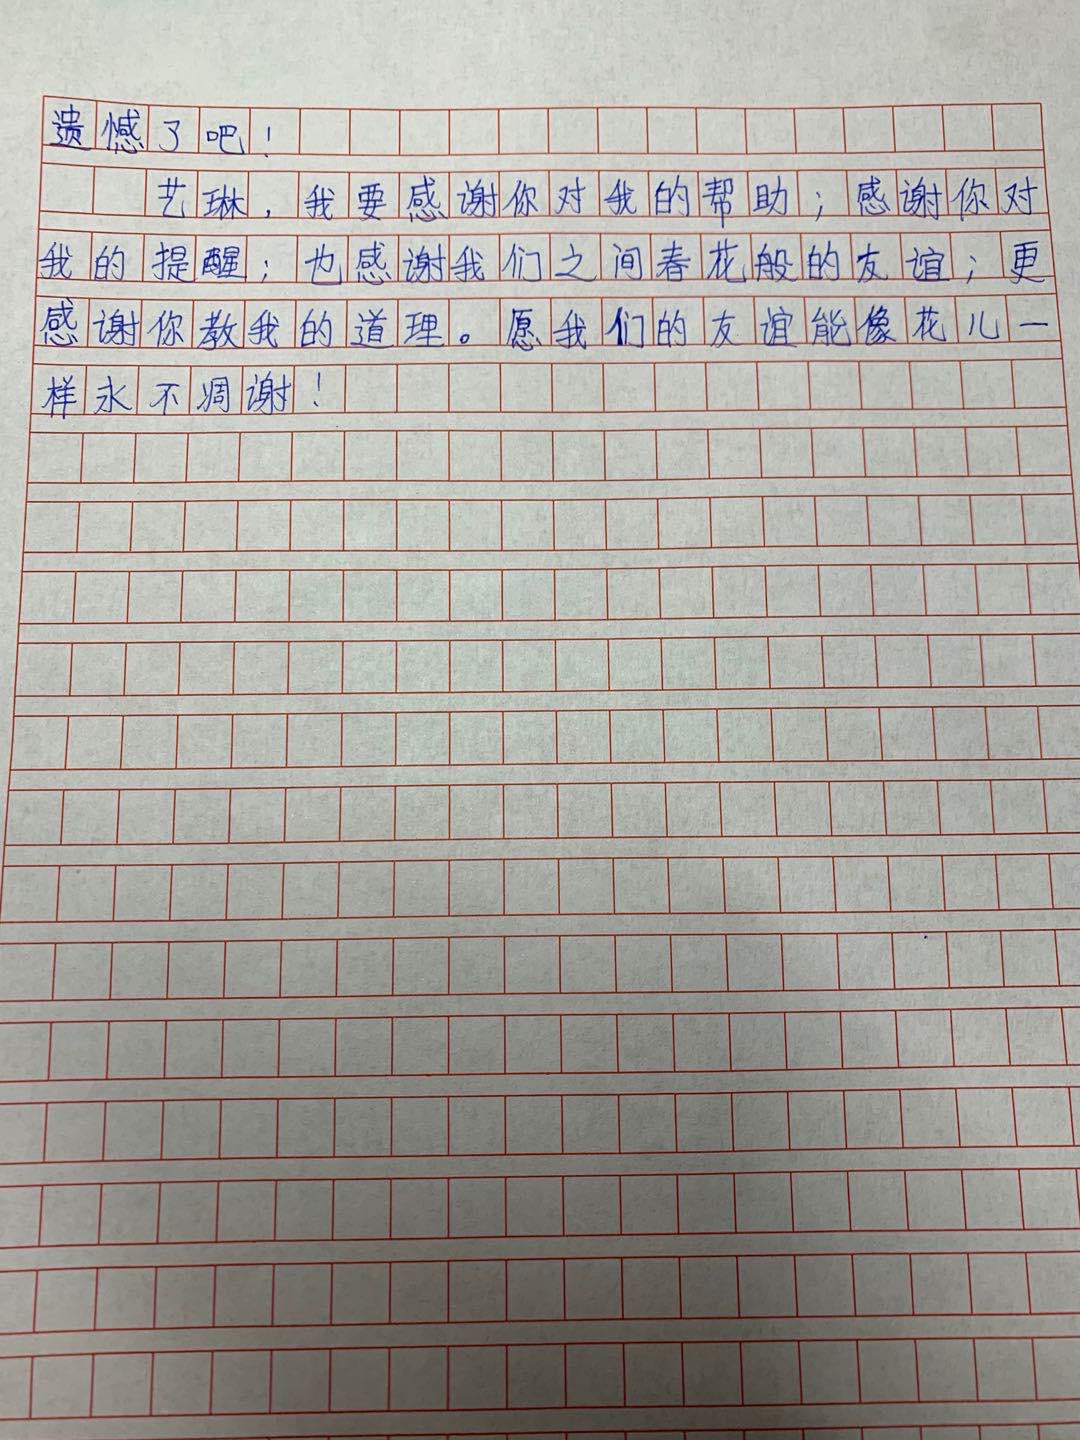 遗憾了吧！
艺琳，我要感谢你对我的帮助；感谢你对
我的提醒；也感谢我们之间春花般的友谊；更
感谢你教我的道理。愿我们的友谊能像花儿一
样永不凋谢！